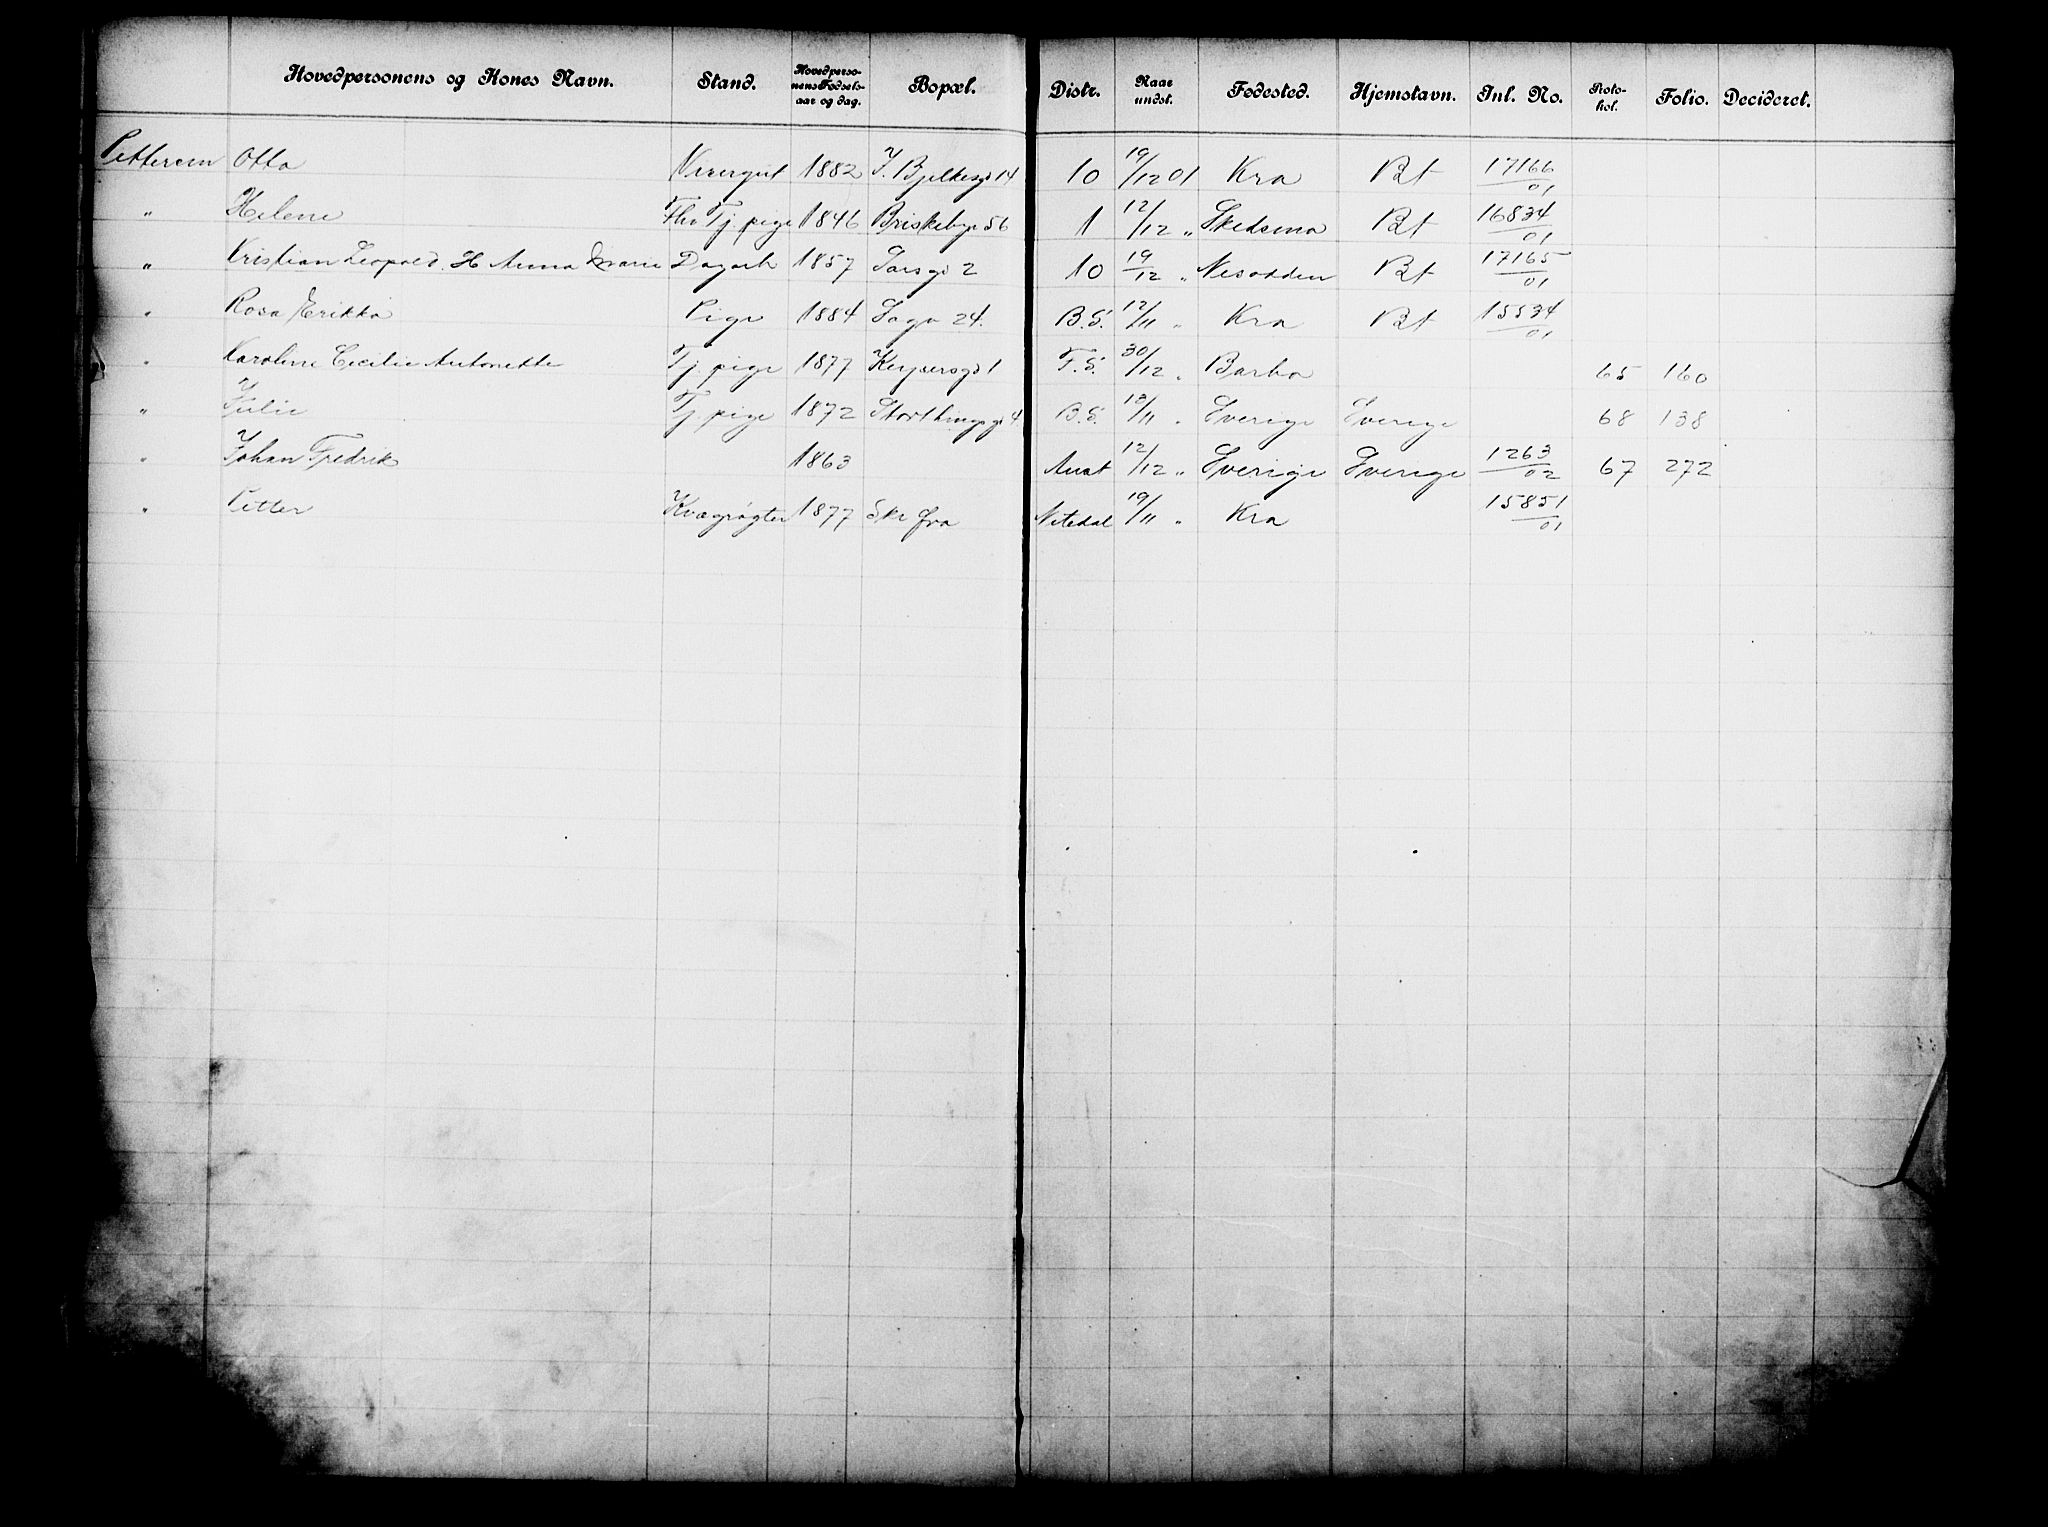 Hovedpersonens og Kones Navn. Stand. Hovedpersonens Fødselsaar og dag. Bopæl. Distr. Naar undst. Fødested. Hjemstavn. Inl. No. Protokol. Folio. Decideret.
Pettersen Otto Visergut 1882 J. Bjelkesgd 14 10 19/12 01 Kra Bt 17166/01
" Helene Fhv Tj. pige 1846 Briskebyg 56 1 12/12 " Skedsmo Bt 16834/01
" Kristian Leopold. H Anna Marie Dagarb 1857 Sarsgd 2 10 19/12 " Nesodden Bt 17165/01
" Rosa Erikka Pige 1884 Saga 24. B.S. 12/11 " Kra Bt 15534/01
" Karoline Cecilie Antonette Tj. pige 1877 Keysersgd 1 F.S. 30/12 " Barbo 65 160
" Julie Tj. pige 1872 Storthingsgd 4 B.S. /11 " Sverige Sverige 68 138
" Johan Fredrik 1863 Anst 12/12 " Sverige Sverige 1263/02 67 272
" Petter Kvægrøgter 1877 Skr fra Nitedal 19/11 " Kra 15851/01